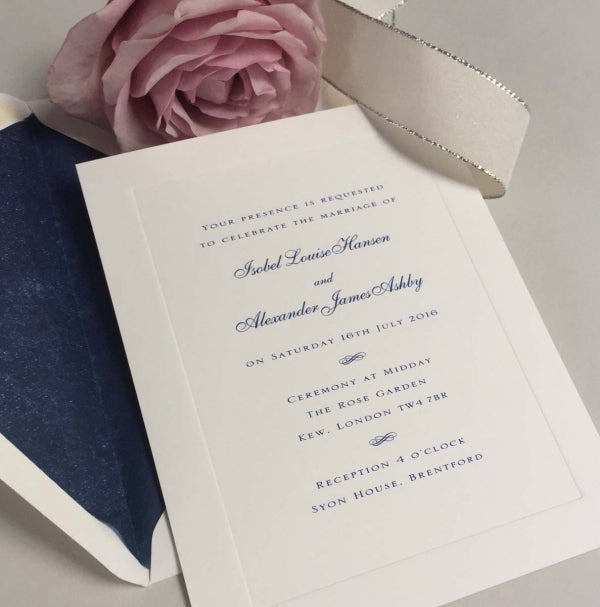 Your presence is requested
to celebrate the marriage of
Isobel Louise Hansen
and
Alexander James Ashby
on Saturday 16th July 2016
Ceremony at Midday
The Rose Garden
Kew, London TW4 7BR
Reception 4 o'clock
Syon House, Brentford